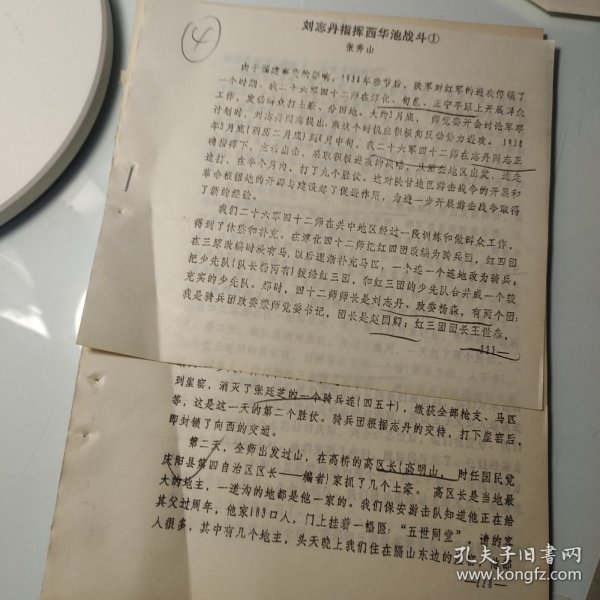 4
刘志丹指挥西华池战斗①
张秀山
由于福建事变的影响，1934年春节后，陕军对红军的进攻停顿了
一个时期。我二十六军四十二师在淳化、旬邑、正宁平原上开展群众
工作，发动群众打土豪、分田地。大约3月底，师党委开会讨论军事
计划时，刘志丹同志提出：乘这个时机应积极向反动势力进攻。1934
年3月底(阴历二月底)到4月中旬，我二十六军四十二师在志丹同志正
确指挥下，主动出击，采取积极进攻的战略，从照金地区出发，边走
边打，在半个月内，打了九个胜仗。这对陕甘边区游击战争的开展和
革命根据地的开辟与建设起了促进作用，为进一步开展游击战争取得
了新的经验。
我们二十六军四十二师在关中地区经过一段训练和做群众工作，
得到了休整和补充。在淳化四十二师把红四团改编为骑兵团，红四团
在三原改编时没有马，以后逐渐补充马匹，一个连一个连地改为骑兵；
把少先队(队长杨丙有)拨给红三团，和红三团的少先队合并成一个较
充实的少先队。那时，四十二师师长是刘志丹、政委杨森，有两个团：
我是骑兵团政委兼师党委书记，团长是赵国卿；红三团团长王世泰，
到崖窑，消灭了张廷芝的一个骑兵连(四五十)，缴获全部枪支、马匹
等，这是这一天的第二个胜仗。骑兵团根据志丹的交待，打下崖窑后，
即封锁了向西的交通。
第二天，全师出发过山，在高桥的高区长(高明山，时任国民党
庆阳县第四自治区区长——编者)家抓了几个土豪。高区长是当地最
大的地主，一道沟的地都是他一家的。我们保安游击队知道他正在给
其父过周年，他家103口人，门上挂着一幅匾：“五世同堂”，请的客
人很多，其中有几个地主，头天晚上我们住在隔山东边的
孔夫子旧书网
kongfz.com